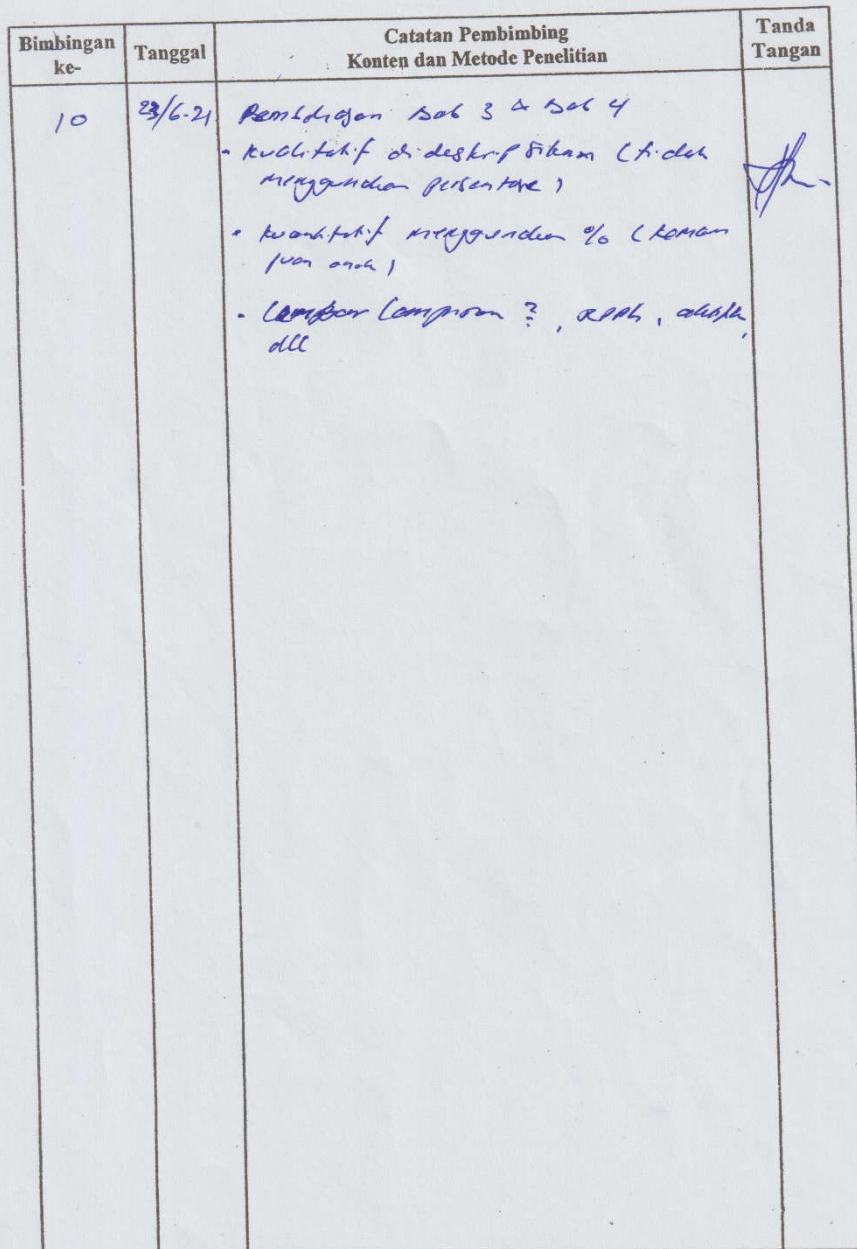 Bimbingan ke-
Tanggal
Catatan Pembimbing
Konten dan Metode Penelitian
Tanda Tangan
10
23/6-21
Bab 3 & Bab 4
- Kualitatif dideskripsikan (tidak
menggunakan persentase)
- Kuantitatif menggunakan % (Kemam
puan anak)
- Lampiran ?, RPPH,
dll